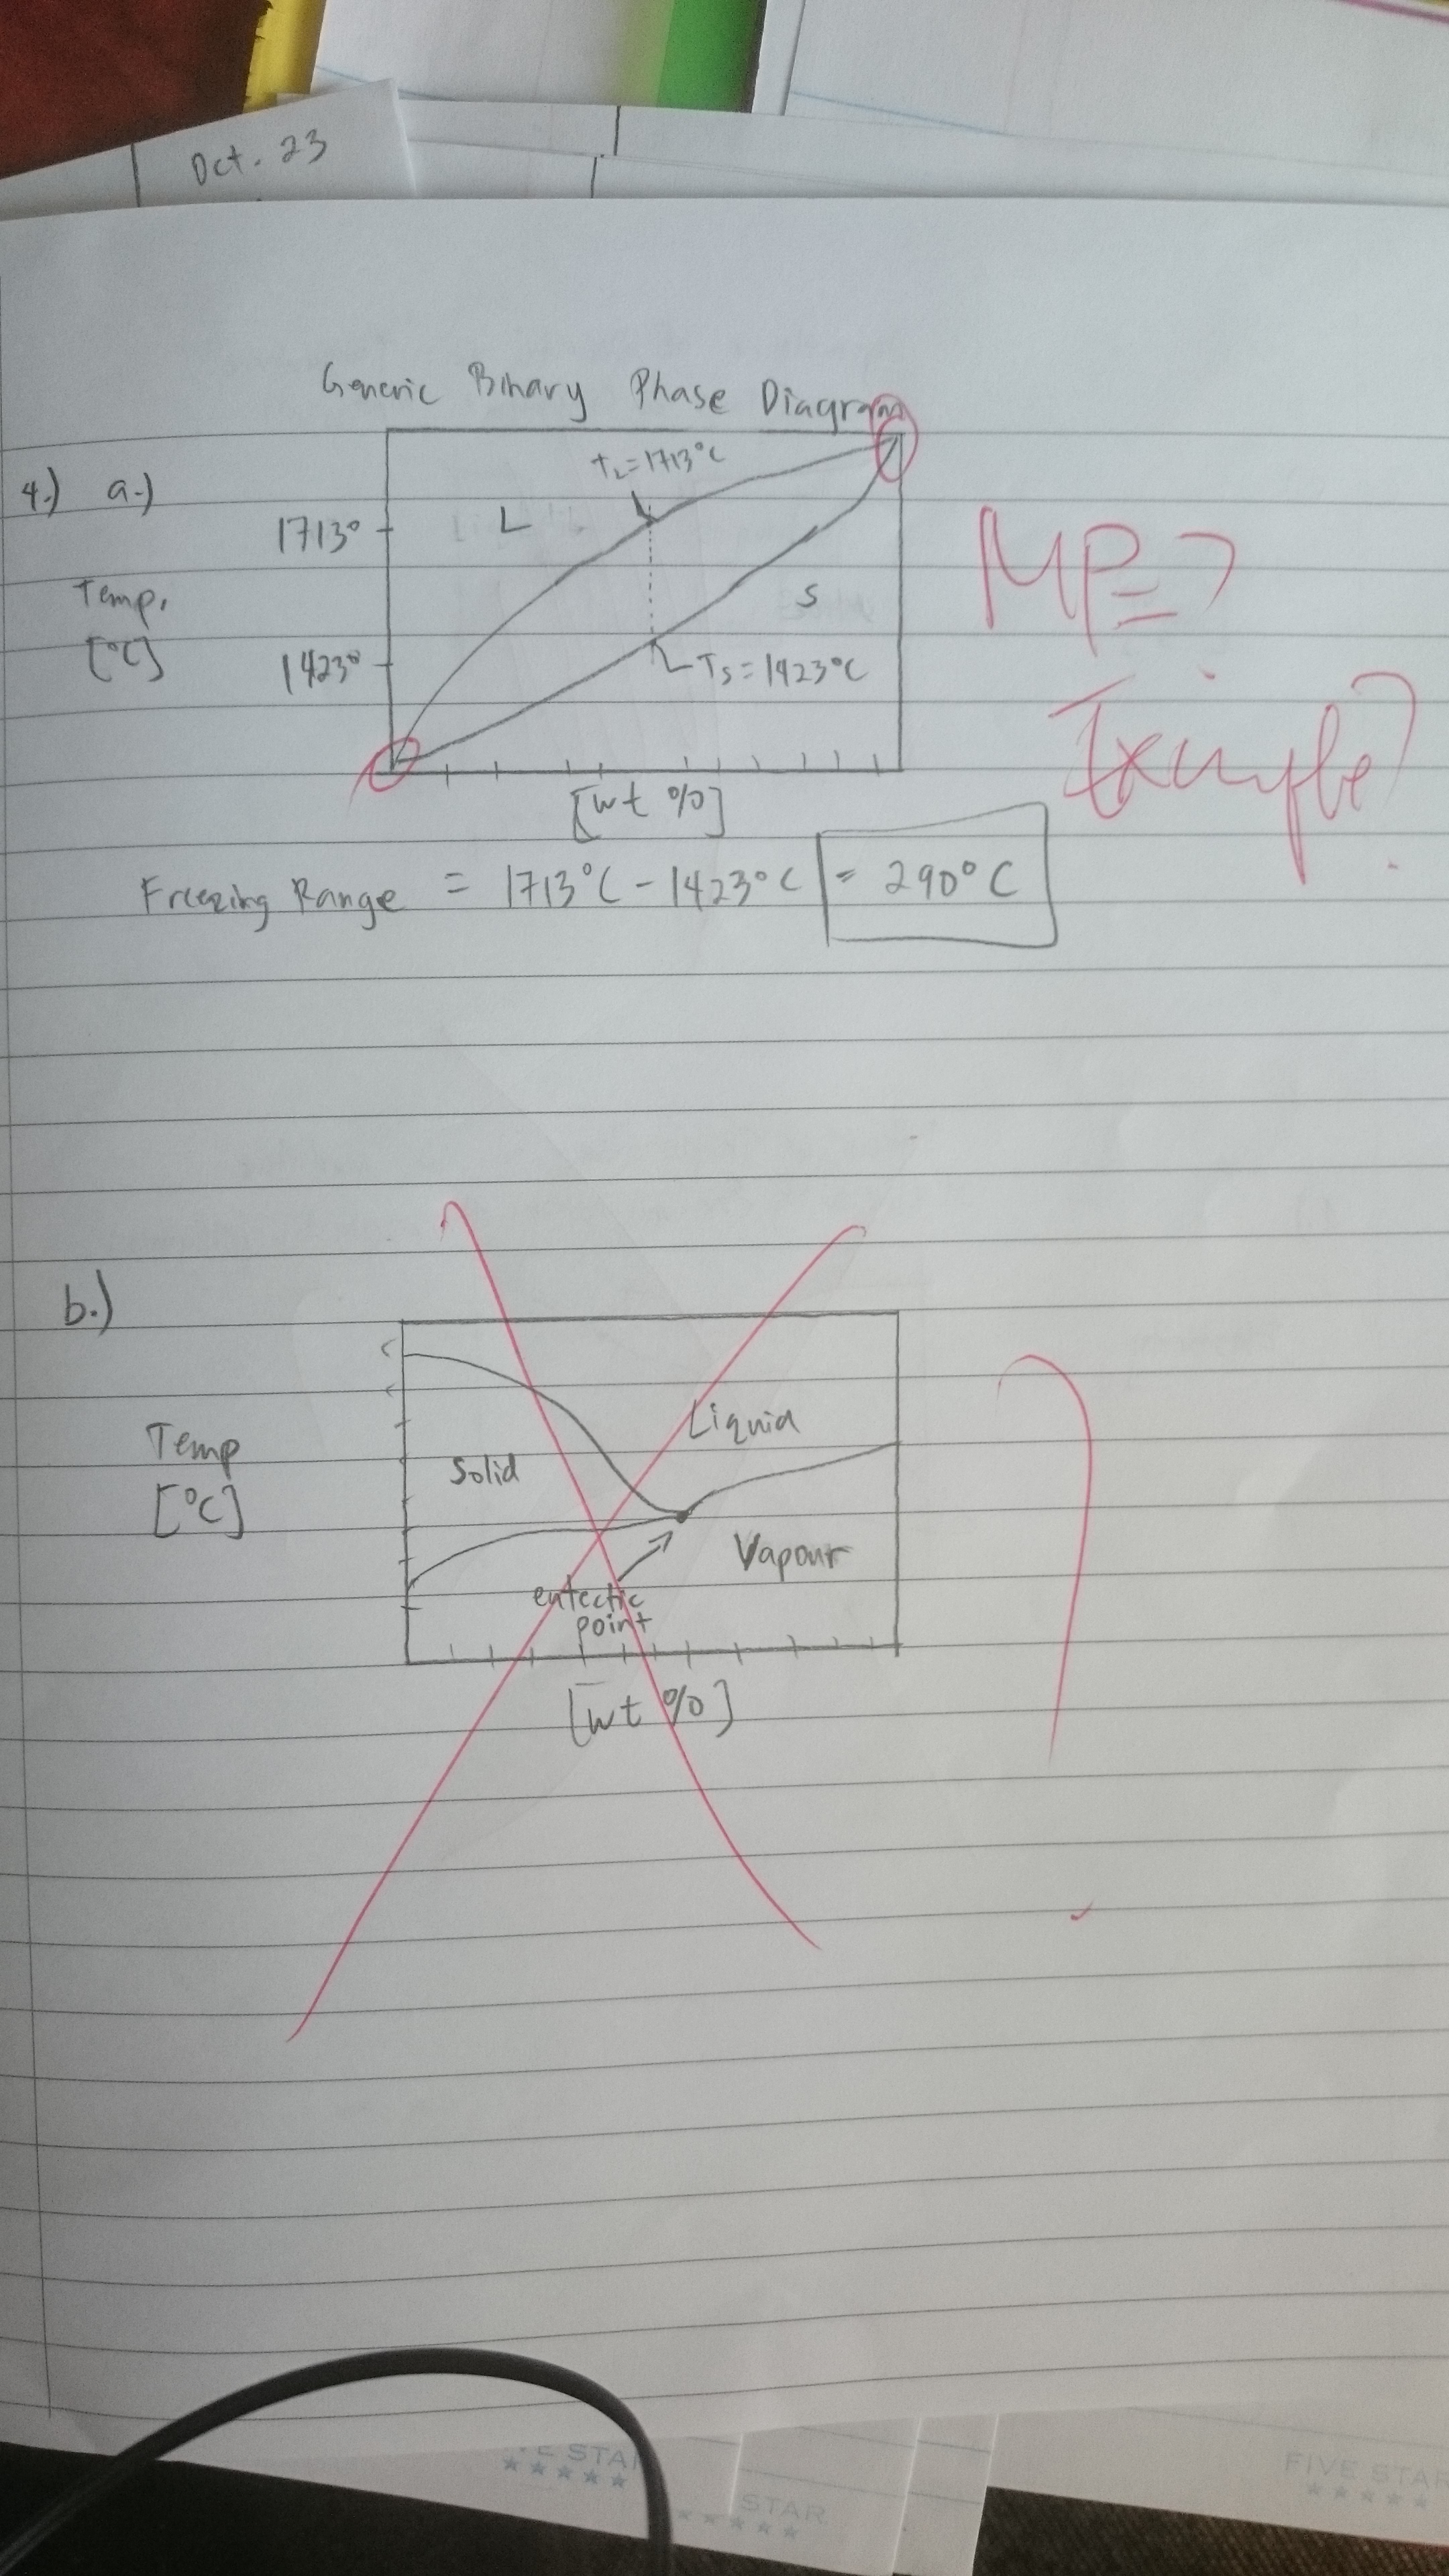 Oct. 23
Generic Binary Phase Diagram
4.) a.)
TL=1713°C
L
1713°
MP=?
Temp.
[°C]
S
1423°
Ts=1423°C
Example?
[wt %]
Freezing Range = 1713°C - 1423°C = 290°C
b.)
Liquid
Temp
[°C]
Solid
Vapour
eutectic
point
[wt %]
?
FIVE STAR
STAR